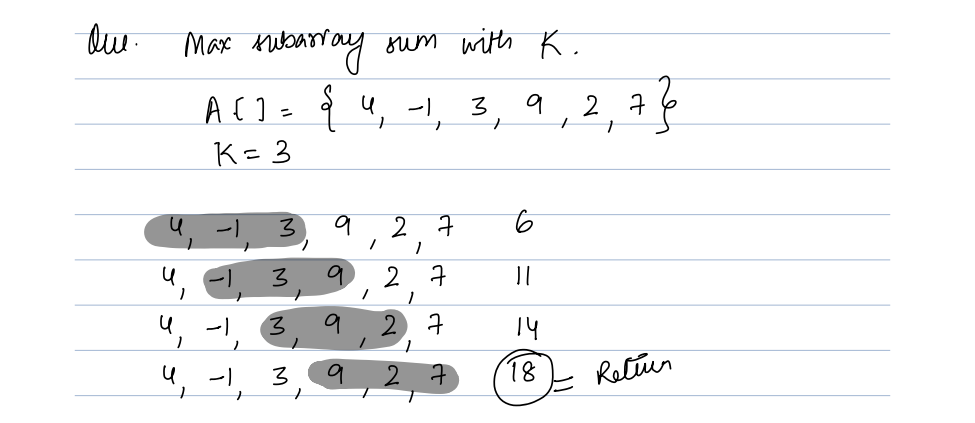 Que. Max subarray sum with K.
A[] = { 4, -1, 3, 9, 2, 7 }
K = 3
4, -1, 3, 9, 2, 7 6
4, -1, 3, 9, 2, 7 11
4, -1, 3, 9, 2, 7 14
4, -1, 3, 9, 2, 7 18 = Return